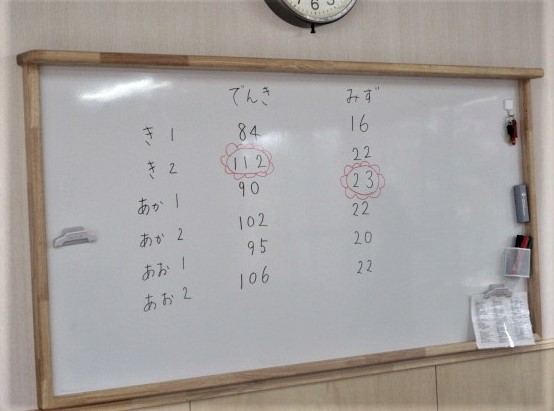 でんき みず
き1 84 16
き2 112 22
あか1 90 23
あか2 102 22
あお1 95 20
あお2 106 22